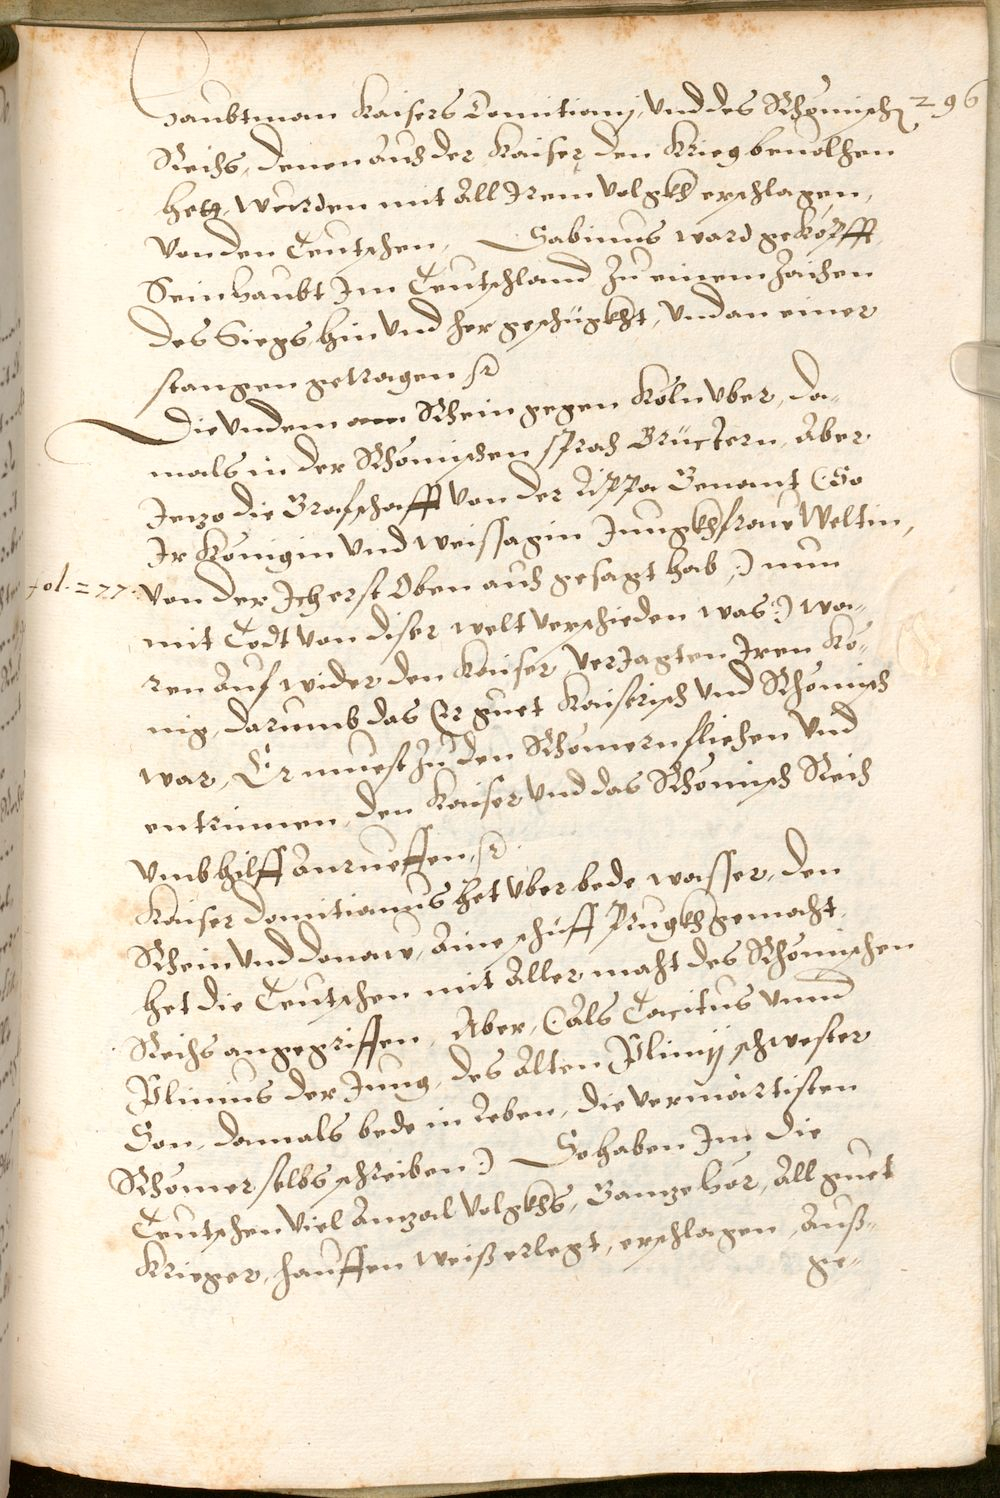 296
Haubtman Kaisers Domitiani, Vnd des Rhömisch
Reichs, denen auch der Kaiser den Krieg beuolhen
hett, wurden mit all Irem volgkh erschlagen,
Von den Teutschen, Sabinus ward geköpfft
Sein haubt Im Teutschland zu einem zaichen
des Siegs, hin vnd her geschügkht, vnd an einer
stangen getragen
Die vndem am Rhein gegen Köln vber, da-
mals in der Rhömischen sprach Bructern, Aber
Jetzo die Grafschafft von der Lippa Genant (So
Ir Königin vnd weissagin Jungkhfraw Weltin,
fol. = 77.
von der Ich erst oben auch gesagt hab,) nun
mit Todt von diser welt verschieden was:) wa-
ren auf wider den Kaiser, verJagten Iren Kö-
nig, darumb das Er guet Kaiserisch vnd Rhömisch
war, Er muest zu den Rhömern fliehen vnd
entrinnen, den Kaiser vnd das Rhömisch Reich
vmb hilff anrueffen,
Kaiser Domitianus het vber bede wasser, den
Rhein vnd donaw, aine schiff Prugkh gemacht
het die Teutschen mit aller macht des Rhömischen
Reichs angegriffen, Aber, (als Tacitus vnnd
Plinius der Jung, des alten Plinij schwester
Son, damals bede in leben, die vermärtisten
Rhömer selbs schreiben:) So haben Im die
Teutschen viel anzal volgkhs, Gantze hör, all guet
Krieger, hauffen weiß erlegt, erschlagen, auß-
ge-